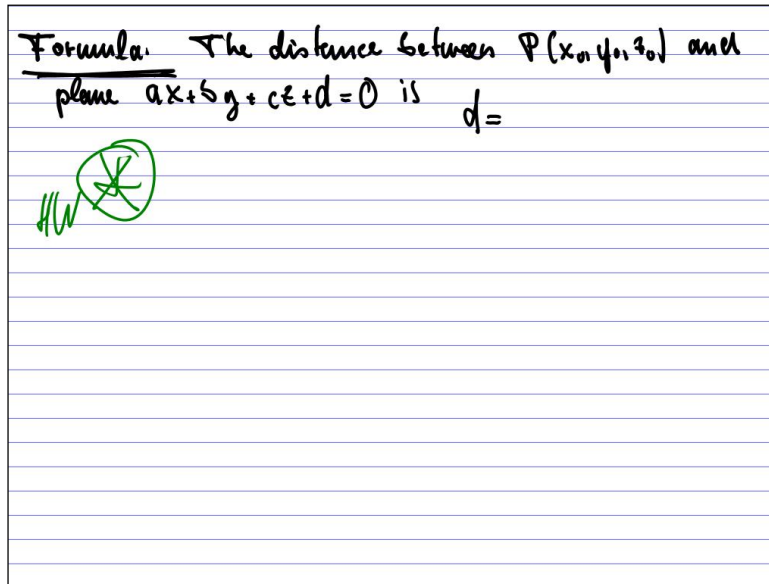 Formula. The distance between P(x₀, y₀, z₀) and
plane ax+by+cz+d=0 is
d=
HW